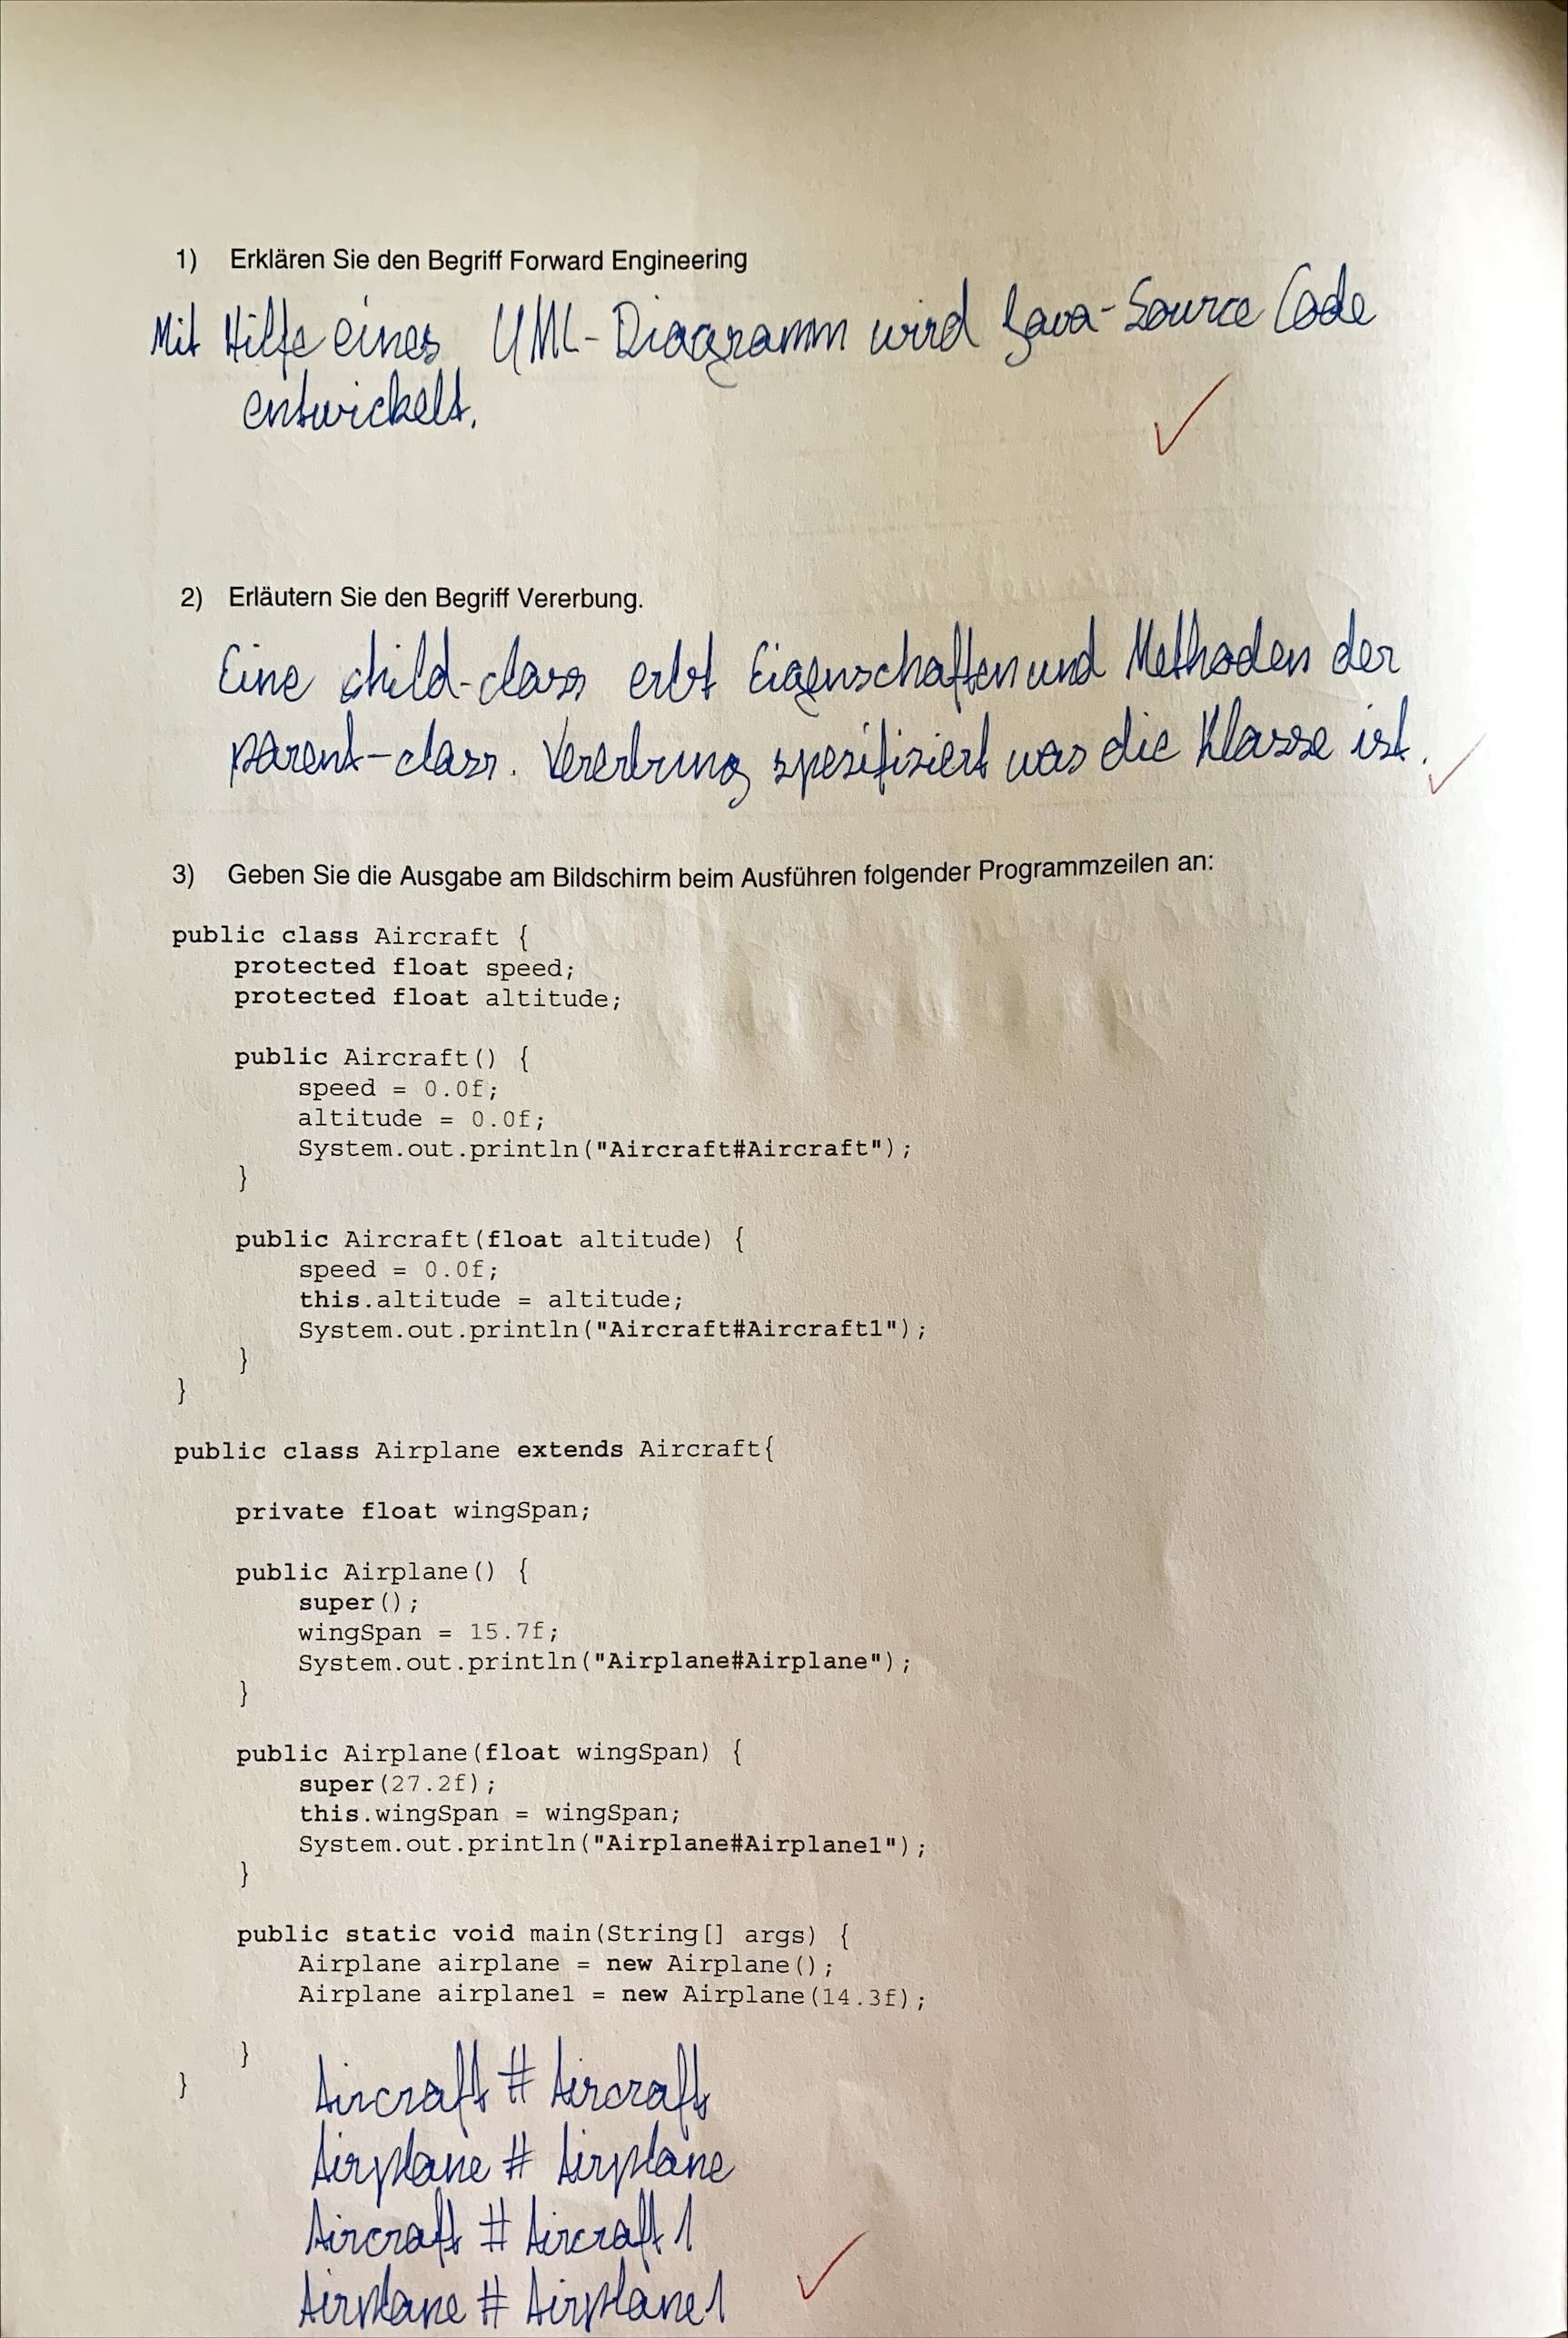 1) Erklären Sie den Begriff Forward Engineering
Mit Hilfe eines UML-Diagramm wird Java-Source Code
entwickelt.
2) Erläutern Sie den Begriff Vererbung.
Eine child-class erbt Eigenschaften und Methoden der
parent-class. Vererbung spezifiziert was die Klasse ist.
3) Geben Sie die Ausgabe am Bildschirm beim Ausführen folgender Programmzeilen an:
public class Aircraft {
protected float speed;
protected float altitude;
public Aircraft() {
speed = 0.0f;
altitude = 0.0f;
System.out.println("Aircraft#Aircraft");
}
public Aircraft(float altitude) {
speed = 0.0f;
this.altitude = altitude;
System.out.println("Aircraft#Aircraft1");
}
}
public class Airplane extends Aircraft{
private float wingSpan;
public Airplane() {
super();
wingSpan = 15.7f;
System.out.println("Airplane#Airplane");
}
public Airplane(float wingSpan) {
super(27.2f);
this.wingSpan = wingSpan;
System.out.println("Airplane#Airplane1");
}
public static void main(String[] args) {
Airplane airplane = new Airplane();
Airplane airplane1 = new Airplane(14.3f);
}
}
Aircraft # Aircraft
Airplane # Airplane
Aircraft # Aircraft 1
Airplane # Airplane1